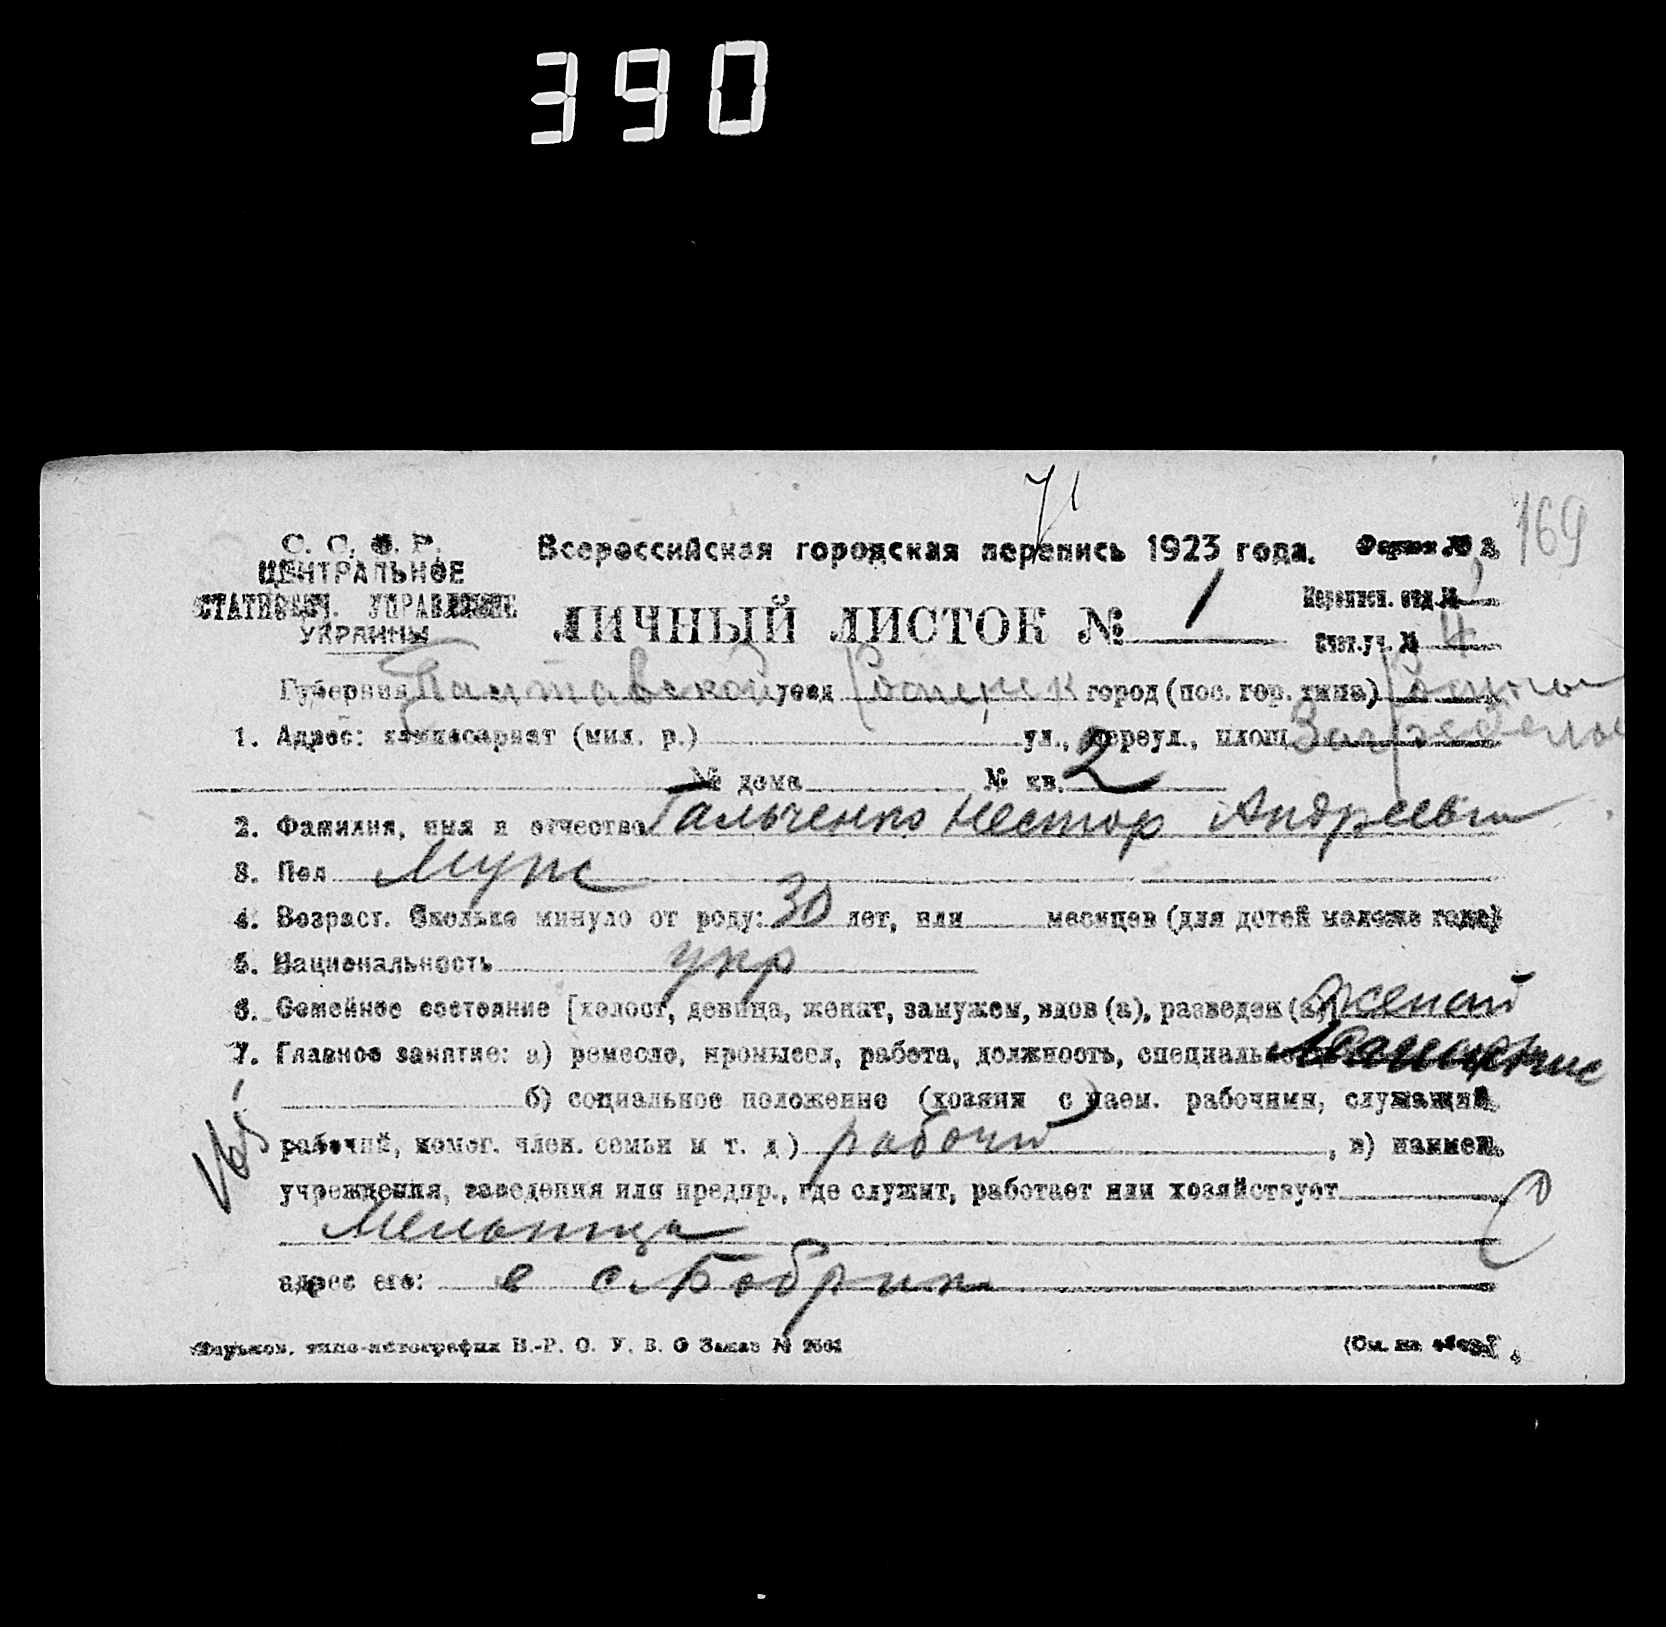 390
71
169
С. С. С. Р.
ЦЕНТРАЛЬНОЕ
СТАТИСТИЧ. УПРАВЛЕНИЕ
УКРАИНЫ
Всероссийская городская перепись 1923 года. Форма № 2.
ЛИЧНЫЙ ЛИСТОК № 1
Переписн. отд. №
Счет. уч. № 4
Губерния Полтавской уезд город (пос. гор. типа)
1. Адрес: комиссариат (мил. р.) ул., переул., площ.
№ дома № кв. 2
2. Фамилия, имя и отчество Гальченко Нестор Андреевич
3. Пол Муж
4. Возраст. Сколько минуло от роду: 30 лет, или месяцев (для детей моложе года)
5. Национальность укр
6. Семейное состояние [холост, девица, женат, замужем, вдов (а), разведен (а)] женат
7. Главное занятие: а) ремесло, промысел, работа, должность, специальность
б) социальное положение (хозяин с наем. рабочими, служащий,
рабочий, помог. член. семьи и т. д) рабочий, в) наимен.
учреждения, заведения или предпр., где служит, работает или хозяйствует
Мельница
адрес его: в с. Бобрик
Харьков. типо-литография В.-Р. О. У. В. О Заказ №
(См. на обор.).